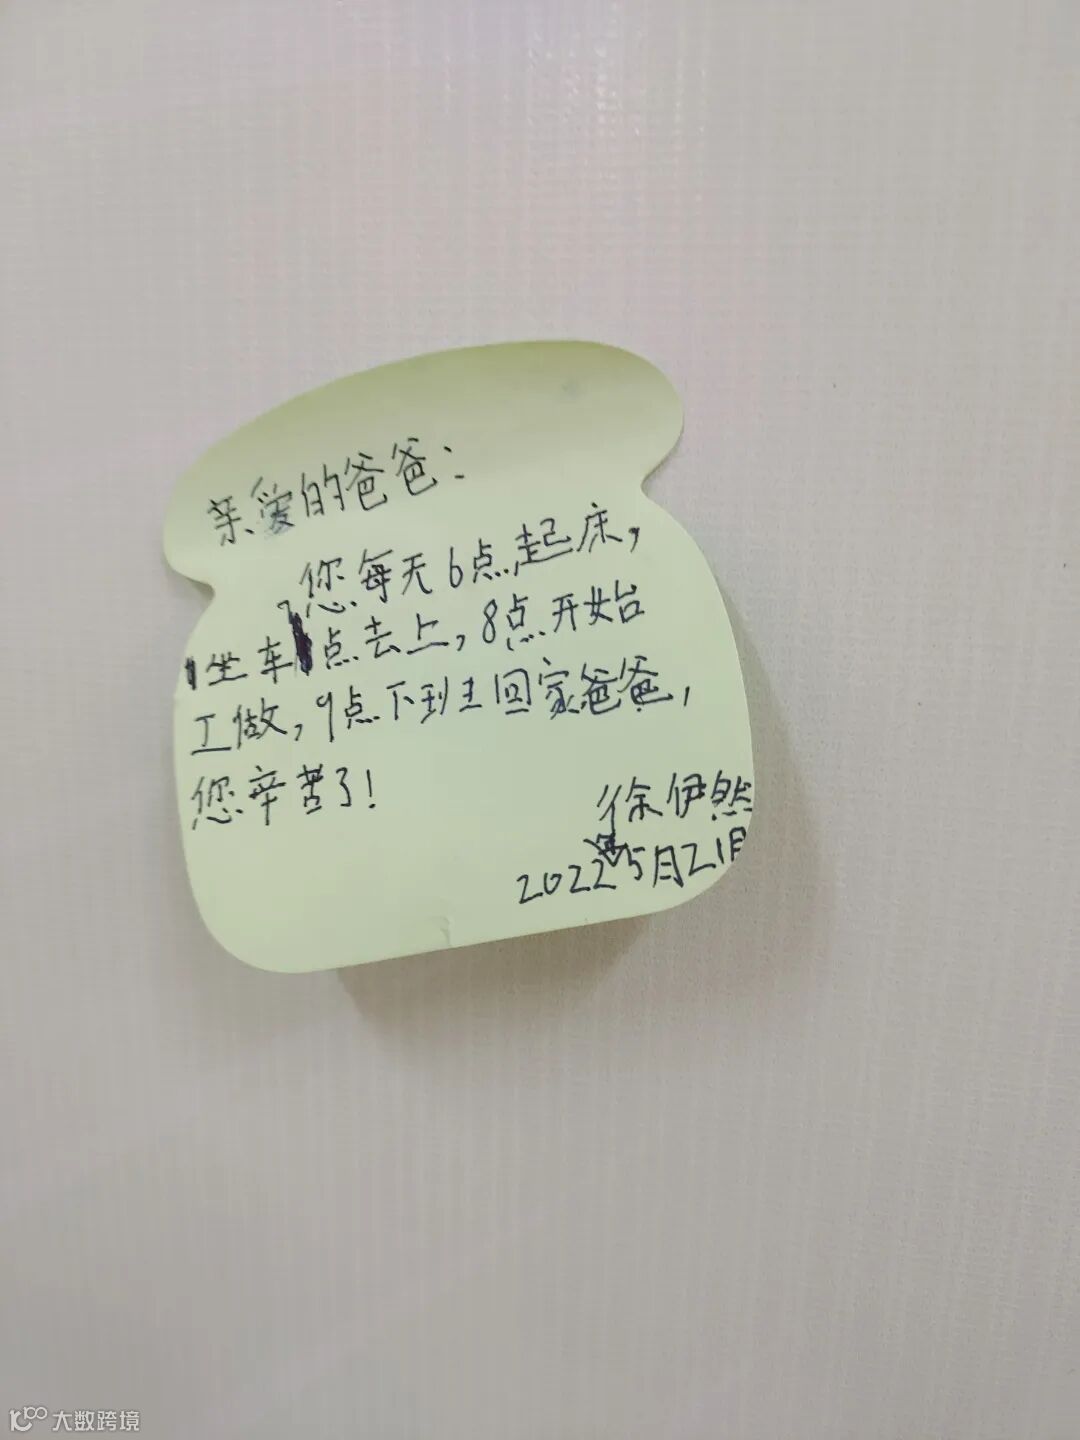 亲爱的爸爸：
您每天6点起床，
坐车7点去上，8点开始
工做，9点下到王回家爸爸，
您辛苦了！
徐伊然
2022年5月21日
大数跨境